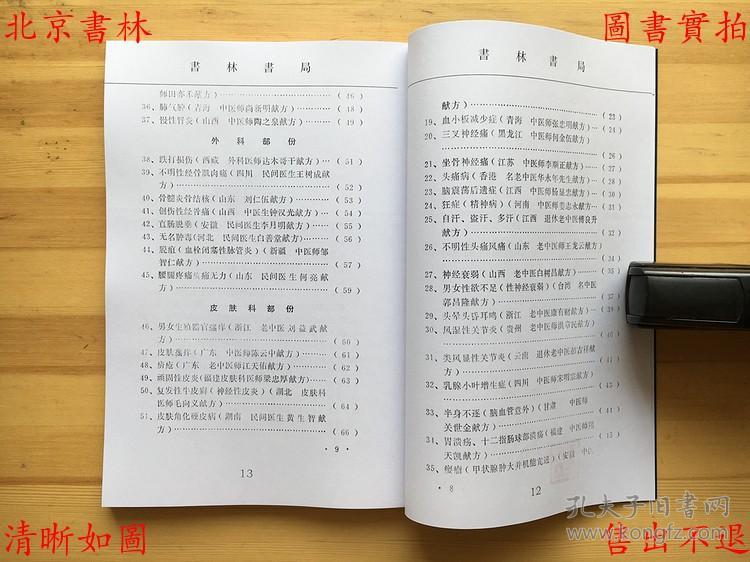 北京書林
圖書實拍
書林書局
师田亦禾献方）……（ 46 ）
36、肺气肿（青海 中医师尚新明献方）……（ 48 ）
37、慢性胃炎（山西 中医师陶之泉献方）……（ 49 ）
外科部份
38、跌打损伤（西藏 外科医师达木哥干献方）……（ 51 ）
39、不明性经骨肌肉痛（四川 民间医生王树成献
方）……（ 52 ）
40、骨髓炎骨结核（山东 刘仁伍献方）……（ 53 ）
41、创伤性经脊痛（山西 中医生钟汉光献方）……（ 54 ）
42、直肠脱垂（安徽 民间医生李月明献方）……（ 55 ）
43、无名肿毒（河北 民间医生白善堂献方）……（ 56 ）
44、脱疽（血栓闭塞性脉管炎）（新疆 中医师邹
智仁献方）……（ 57 ）
45、腰腿疼痛 痛无力（山东 民间医生何亮献
方）……（ 59 ）
皮肤科部份
46、男女生殖器官瘙痒（浙江 老中医刘益武献
方）……（ 60 ）
47、皮肤瘙痒（广东 中医师陈云中献方）……（ 61 ）
48、痤疮（广东 老中医师江天佑献方）……（ 62 ）
49、顽固性皮炎（福建皮肤科医师梁忠厚献方）……（ 63 ）
50、复发性牛皮癣（神经性皮炎）（湖北 皮肤科
医师毛向义献方）……（ 64 ）
51、皮肤角化硬皮病（湖南 民间医生黄生智献
方）……（ 66 ）
· 9 ·
13
書林書局
献方）……（ 23 ）
19、血小板减少症（青海 中医师张忠明献方）……（ 24 ）
20、三叉神经痛（黑龙江 中医师何金伍献方）
……（ 26 ）
21、坐骨神经痛（江苏 中医师李顺正献方）……（ 27 ）
22、头痛病（香港 名老中医华永年先生献方）……（ 28 ）
23、脑震荡后遗症（江西 中医师杨显忠献方）……（ 30 ）
24、狂症（精神病）（河南 中医师姜志永献方）……（ 31 ）
25、自汗、盗汗、多汗（江西 退休老中医傅良升
献方）……（ 32 ）
26、不明性头痛风痛（山东 老中医师王龙云献方）
……（ 34 ）
27、神经衰弱（山西 老中医白树昌献方）……（ 35 ）
28、男女性欲不足（性神经衰弱）（台湾 名中医
郭昌隆献方）……（ 37 ）
29、头晕头昏耳鸣（浙江 老中医康有财献方）……（ 39 ）
30、风湿性关节炎（贵州 老中医师洪章民献方）
……（ 40 ）
31、类风湿性关节炎（云南 退休老中医彭吉祥献
方）……（ 41 ）
32、乳腺小叶增生症（四川 中医师宋明宗献方）
……（ 43 ）
33、半身不遂（脑血管意外）（甘肃 中医师
关世金献方）……（ 44 ）
34、胃溃疡、十二指肠球部溃疡（福建 中医师
天凯献方）……（ 45 ）
35、瘿瘤（甲状腺肿大并机能亢进）（安徽 中医
· 8
12
孔夫子旧书网
www.kongfz.com
清晰如圖
售出不退